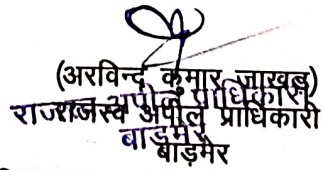 (अरविन्द कुमार जाखड़)
राजस्व अपील प्राधिकारी
राजस्व अपील प्राधिकारी
बाड़मेर
बाड़मेर